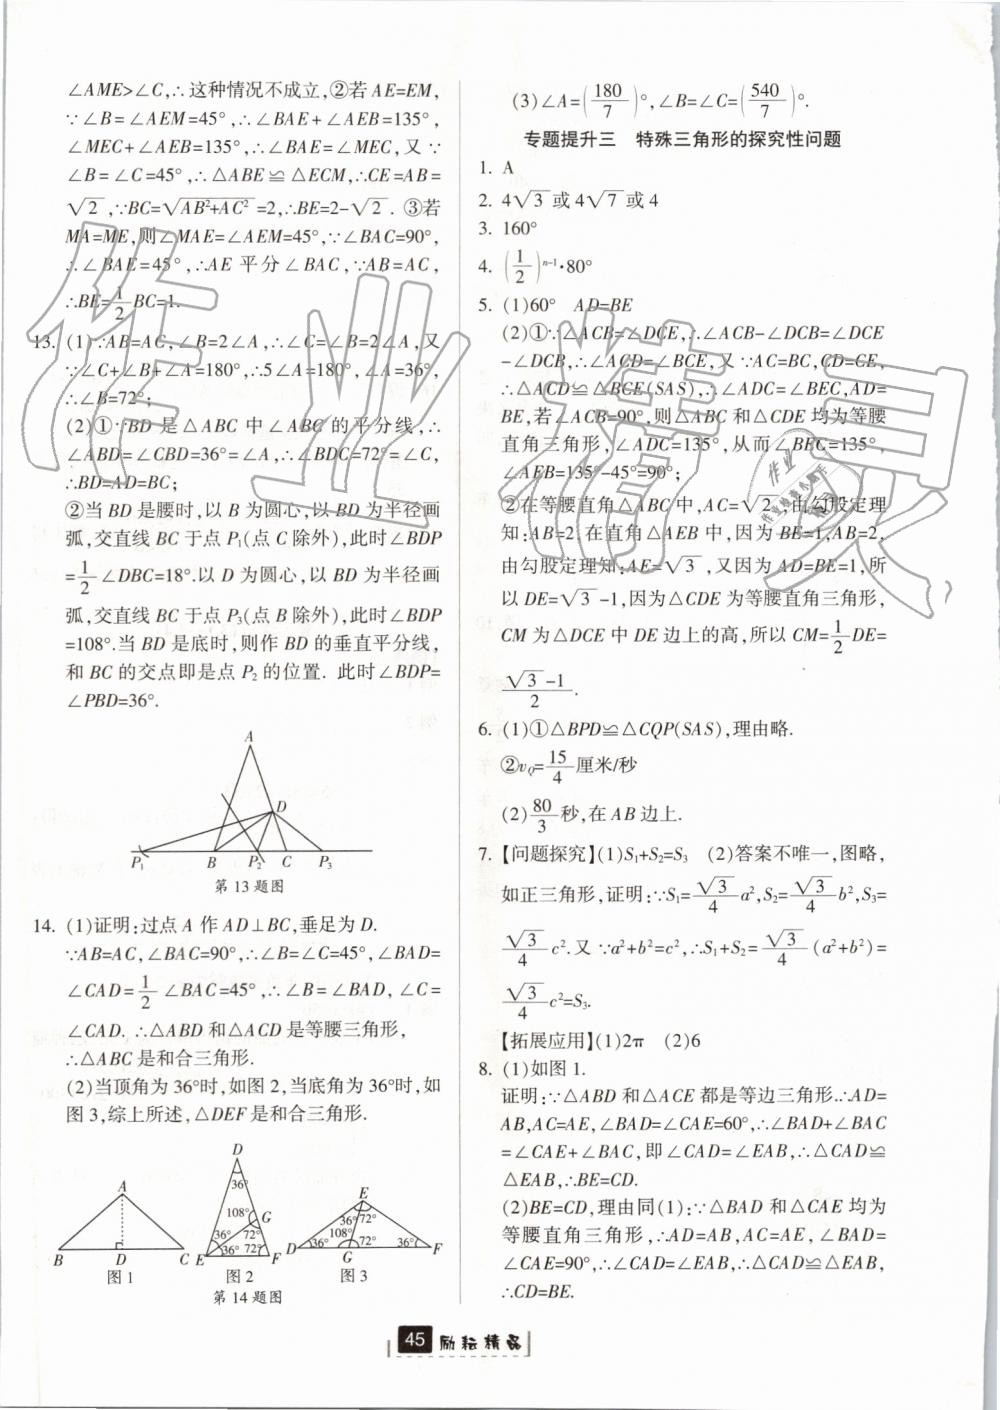 ∠AME>∠C,∴这种情况不成立,②若AE=EM,
∵∠B=∠AEM=45°,∴∠BAE+∠AEB=135°,
∠MEC+∠AEB=135°,∴∠BAE=∠MEC,又∵
∠B=∠C=45°,∴△ABE≌△ECM,∴CE=AB=
√2,∵BC=√(AB²+AC²)=2,∴BE=2-√2. ③若
MA=ME,则∠MAE=∠AEM=45°,∵∠BAC=90°,
∴∠BAE=45°,∴AE平分∠BAC,∵AB=AC,
∴BE=1/2 BC=1.
13. (1)∵AB=AC,∠B=2∠A,∴∠C=∠B=2∠A,又
∵∠C+∠B+∠A=180°,∴5∠A=180°,∠A=36°,
∴∠B=72°;
(2)①∵BD是△ABC中∠ABC的平分线,∴
∠ABD=∠CBD=36°=∠A,∴∠BDC=72°=∠C,
∴BD=AD=BC;
②当BD是腰时,以B为圆心,以BD为半径画
弧,交直线BC于点P₁(点C除外),此时∠BDP
=1/2∠DBC=18°.以D为圆心,以BD为半径画
弧,交直线BC于点P₃(点B除外),此时∠BDP
=108°.当BD是底时,则作BD的垂直平分线,
和BC的交点即是点P₂的位置. 此时∠BDP=
∠PBD=36°.
A
D
P₁ B P₂ C P₃
第13题图
14. (1)证明:过点A作AD⊥BC,垂足为D.
∵AB=AC,∠BAC=90°,∴∠B=∠C=45°,∠BAD=
∠CAD=1/2∠BAC=45°,∴∠B=∠BAD,∠C=
∠CAD. ∴△ABD和△ACD是等腰三角形,
∴△ABC是和合三角形.
(2)当顶角为36°时,如图2,当底角为36°时,如
图3,综上所述,△DEF是和合三角形.
A
B D C
图1
D
36°
108° G
36° 72°
36° 72°
E F
图2
E
36° 72°
108°
36° 72° 36°
D G F
图3
第14题图
(3)∠A=(180/7)°,∠B=∠C=(540/7)°.
专题提升三 特殊三角形的探究性问题
1. A
2. 4√3或4√7或4
3. 160°
4. (1/2)ⁿ⁻¹·80°
5. (1)60° AD=BE
(2)①∵∠ACB=∠DCE,∴∠ACB-∠DCB=∠DCE
-∠DCB,∴∠ACD=∠BCE,又∵AC=BC,CD=CE,
∴△ACD≌△BCE(SAS),∴∠ADC=∠BEC,AD=
BE,若∠ACB=90°,则△ABC和△CDE均为等腰
直角三角形,∠ADC=135°,从而∠BEC=135°,
∠AEB=135°-45°=90°;
②在等腰直角△ABC中,AC=√2,由勾股定理
知:AB=2,在直角△AEB中,因为BE=1,AB=2,
由勾股定理知:AE=√3,又因为AD=BE=1,所
以DE=√3-1,因为△CDE为等腰直角三角形,
CM为△DCE中DE边上的高,所以CM=1/2 DE=
(√3-1)/2.
6. (1)①△BPD≌△CQP(SAS),理由略.
②v_Q=15/4厘米/秒
(2)80/3秒,在AB边上.
7. 【问题探究】(1)S₁+S₂=S₃ (2)答案不唯一,图略,
如正三角形,证明:∵S₁=√3/4 a²,S₂=√3/4 b²,S₃=
√3/4 c².又∵a²+b²=c²,∴S₁+S₂=√3/4(a²+b²)=
√3/4 c²=S₃.
【拓展应用】(1)2π (2)6
8. (1)如图1.
证明:∵△ABD和△ACE都是等边三角形.∴AD=
AB,AC=AE,∠BAD=∠CAE=60°,∴∠BAD+∠BAC
=∠CAE+∠BAC,即∠CAD=∠EAB,∴△CAD≌
△EAB,∴BE=CD.
(2)BE=CD,理由同(1):∵△BAD和△CAE均为
等腰直角三角形,∴AD=AB,AC=AE,∠BAD=
∠CAE=90°,∴∠CAD=∠EAB,∴△CAD≌△EAB,
∴CD=BE.
45 励耘精品
作业精灵